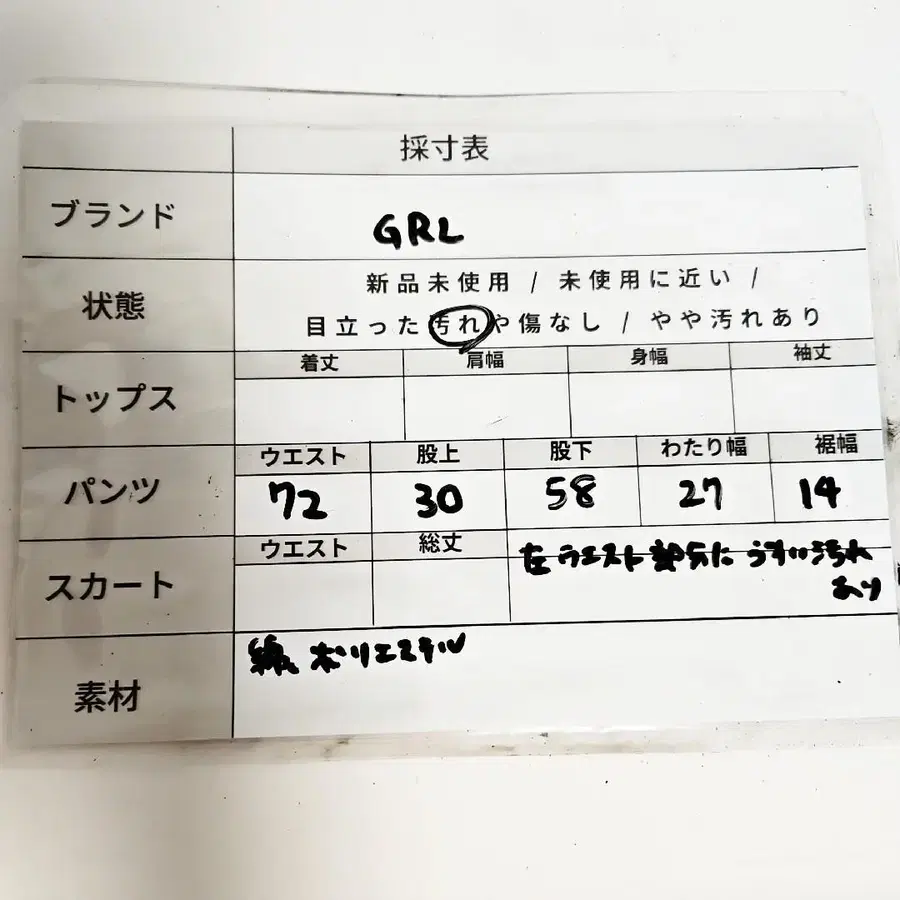 採寸表
ブランド
GRL
状態
新品未使用 / 未使用に近い /
目立った汚れや傷なし / やや汚れあり
トップス
着丈 肩幅 身幅 袖丈
パンツ
ウエスト 股上 股下 わたり幅 裾幅
72 30 58 27 14
スカート
ウエスト 総丈
左ウエスト部分にうすい汚れ
あり
素材
綿、ポリエステル